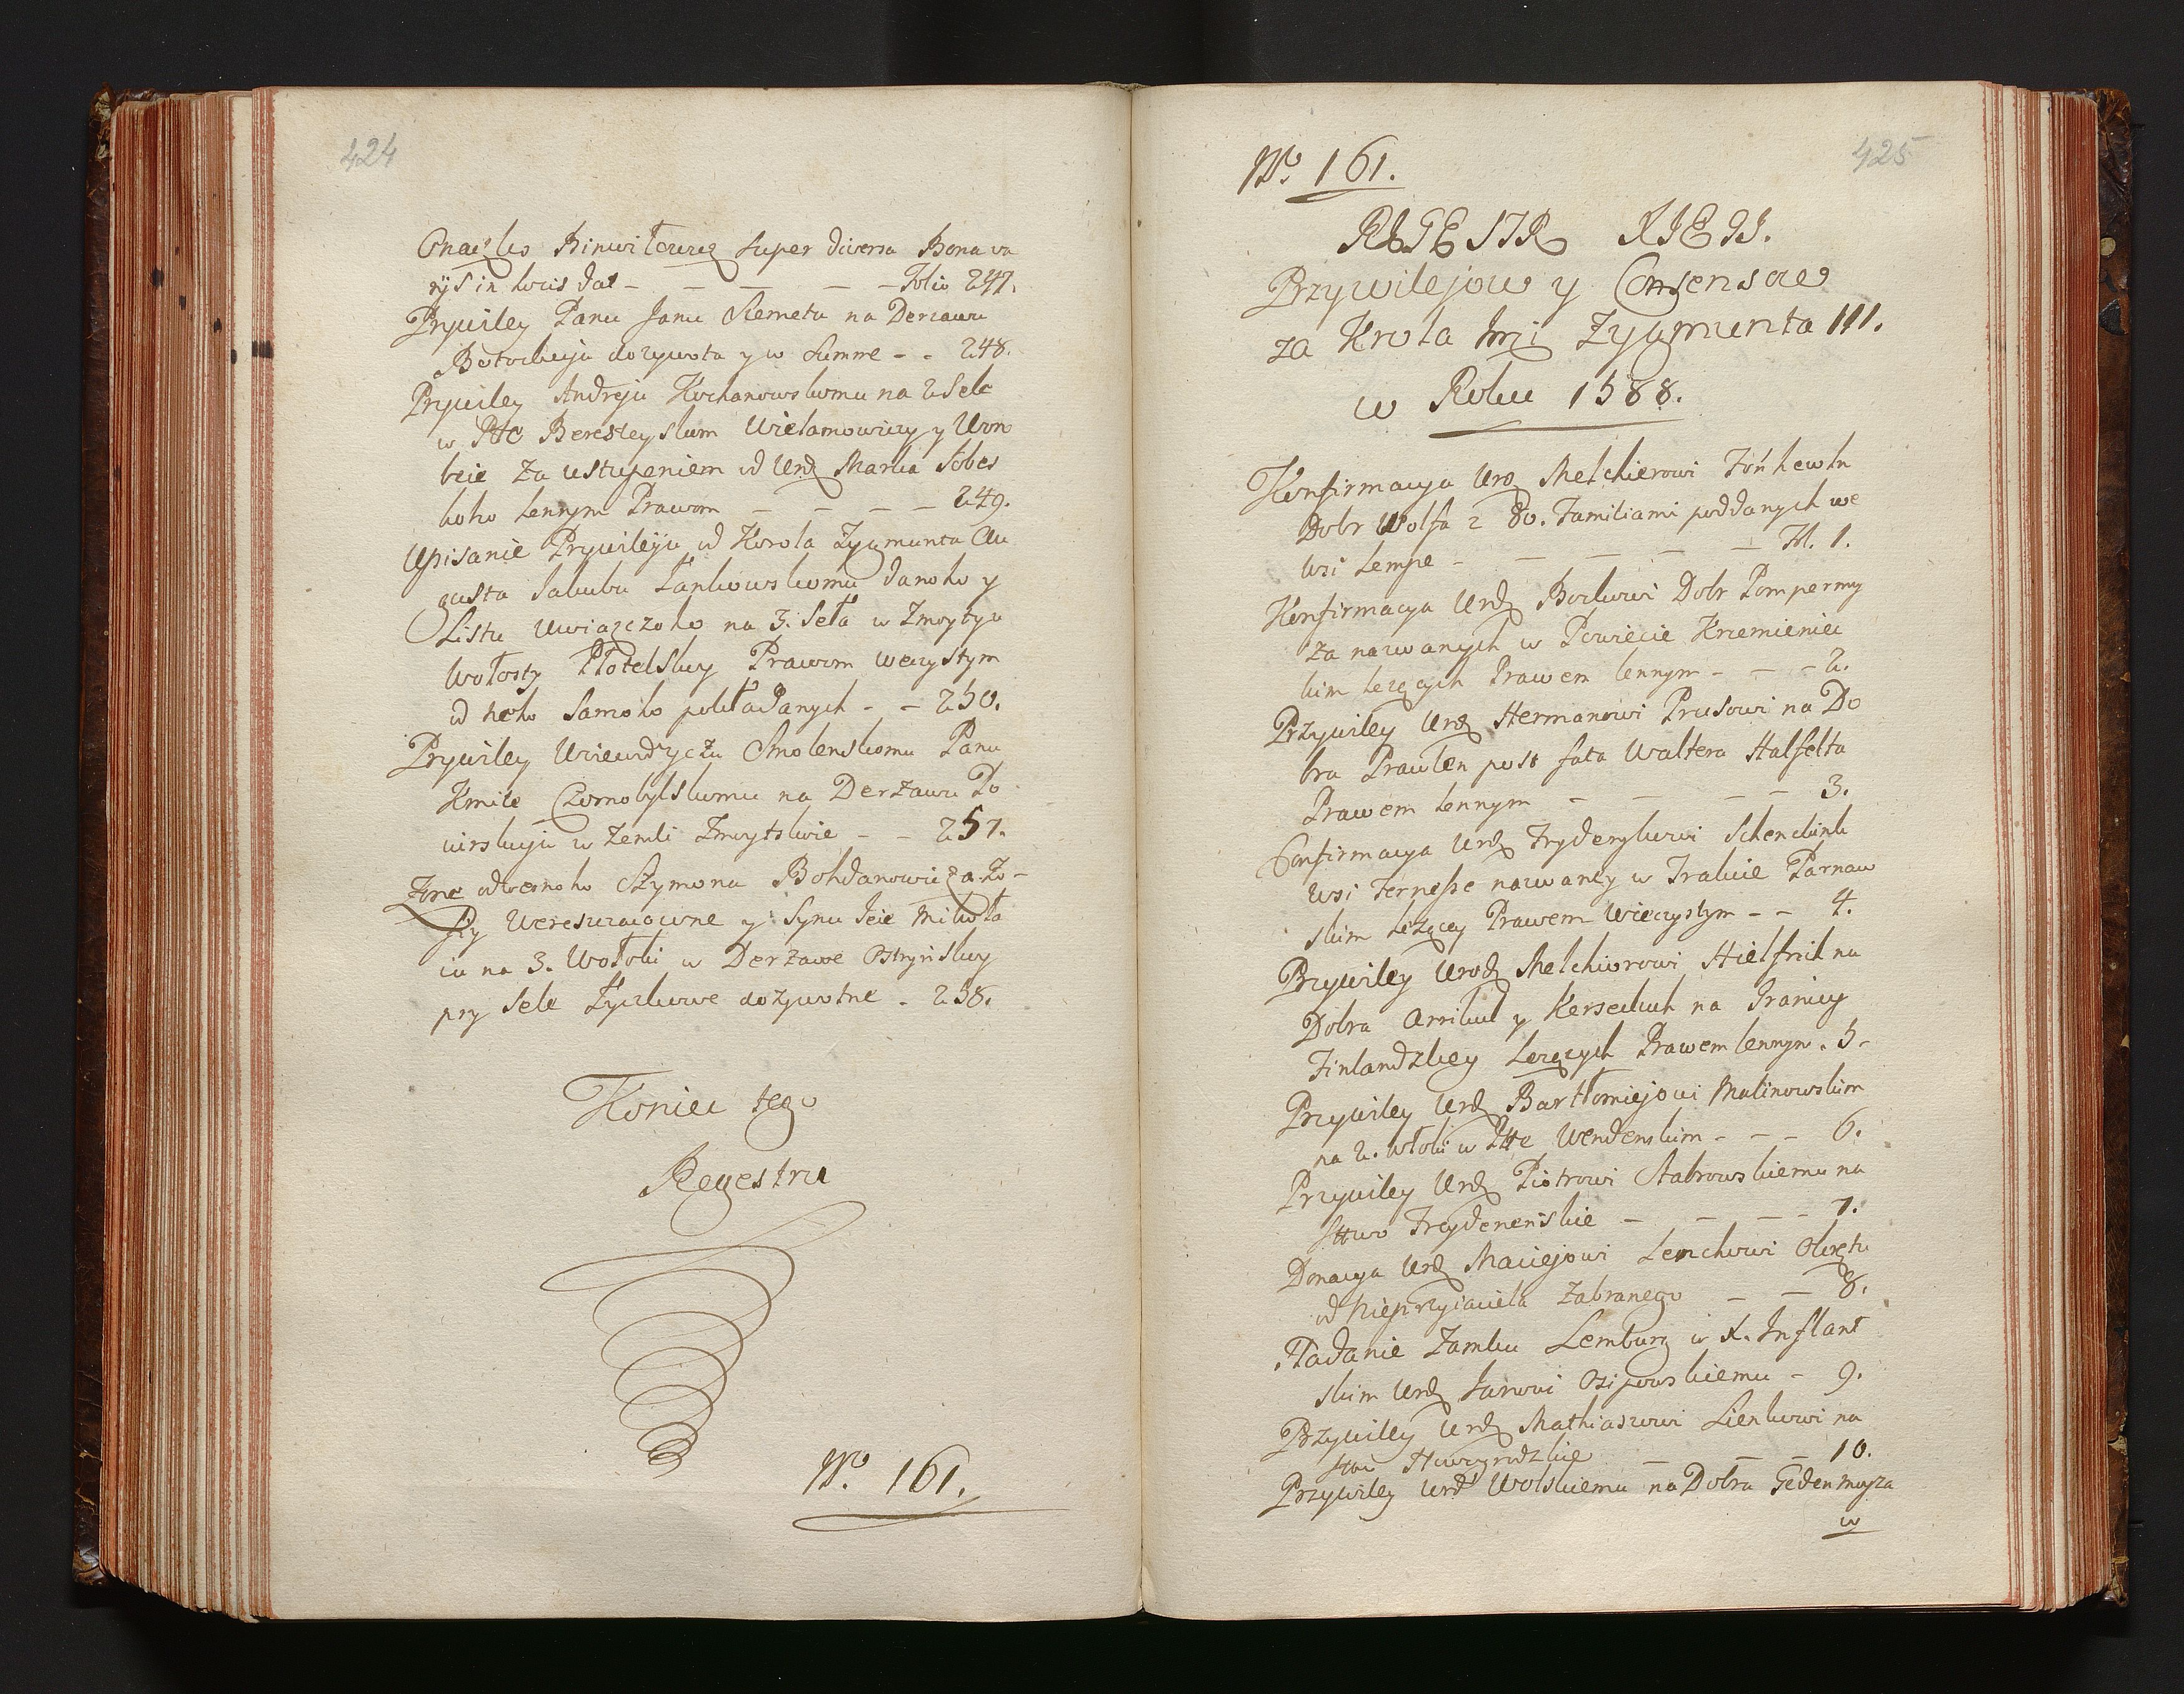 424
Onaczko Binwiłowicz super diversa Bona va
rijs in locis dat - - - - Folio 247.
Prywiley Panu Janu Siemetu na Derzawu
Botockuju dozywota y w Summe - - 248.
Prywiley Andreju Kochanowskomu na 2 Sele
w Ptte Beresteyskum Wielamowiczy y Woro
bcie za ustupeniem od Urdz Marka Sobes
koho lennym Prawom - - - - 249.
Upisanie Prywileju od Korola Zygmunta Au
gusta Jakubu Łankowskomu danoho y
Listu Uwiazczoho na 3. Seła w Zmoytyu
Wołosty Płotelskoy Prawom weczystym
od neho samoho pokładanych - - 250.
Prywiley Wojewodyczu Smolenskomu Panu
Kmite Czornobylskomu na Derzawu Po
wirskuju w Zemli Zmoytskoie - - 257.
Zone odwernoho Szymona Bohdanowicza Zo-
fiy Wereszczacowne y Synu Jeie Mikoła
iu na 3. Wołoki w Derzawe Ostrynskoy
pry Sele Łyczkowe dozywotne - 258.
Koniec tego
Regestru
No. 161.
425
No. 161.
REGESTR XIĘGI.
Przywilejow y Consensow
za Krola Jmci Zygmunta III.
w Roku 1588.
Konfirmacya Urdz Melchierowi Fońkewłn
Dobr Wolfa z 80. Familiami poddanych we
wsi Lempe - - - - - Fol. 1.
Konfirmacya Urdz Borkowi Dobr Pompermy
za nazwanych w Powiecie Krzemieniec
kim lezących Prawem lennym - - - 2.
Przywiley Urdz Hermanowi Prusowi na Do
bra Prawlen post fata Waltera Halfelta
Prawem lennym - - - - 3.
Confirmacya Urdz Fryderykowi Schencking
wsi Fernesse nazwaney w Trakcie Parnaw
skim leżącey Prawem Wieczystym - - 4.
Przywiley Urodz Melchiorowi Hielfrih na
Dobra Arrikul y Kerseckuh na Granicy
Finlandzkiey Lezących Prawem lennym. 5.
Przywiley Urdz Bartłomiejowi Malinowskim
na 2. włoki w Ptte Wendenskim - - - 6.
Przywiley Urdz Piotrowi Stabrowskiemu na
Sttwo Treydeneńskie - - - - 7.
Donacya Urdz Maciejowi Lemchowi Okrętu
od Nieprzyiaciela Zabranego - - 8.
Padanie Zamku Lemburg w X. Inflant
skim Urdz Janowi Osipowskiemu - 9.
Przywiley Urdz Mathiaszowi Lienkowi na
Sttwo Nowogrodzkie - - - 10.
Przywiley Urdz Wolskiemu na Dobra Gedenmoyza
w